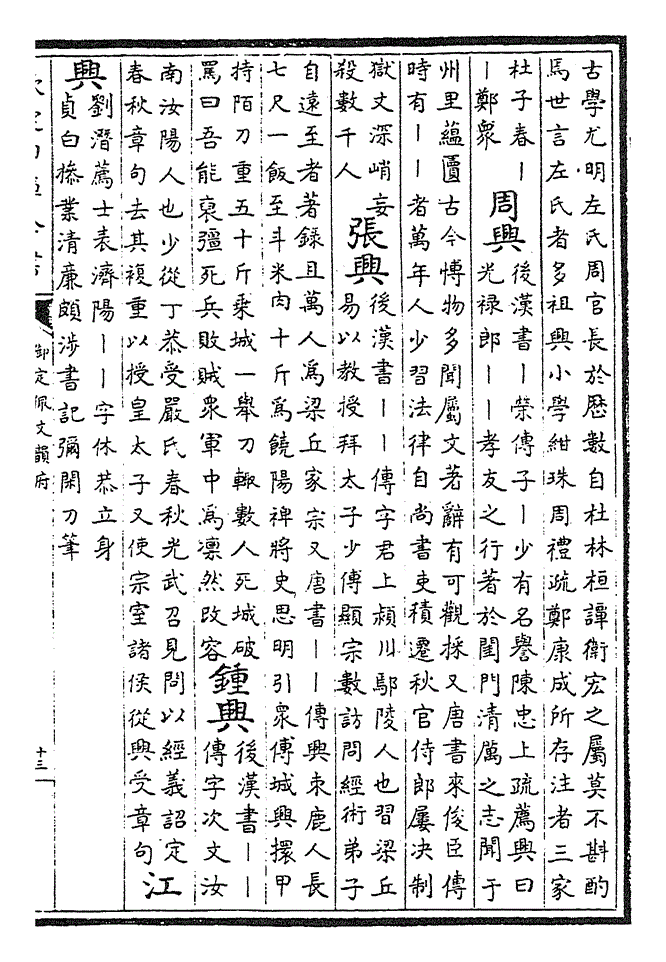 古學尤明左氏周官長於歷數自杜林桓譚衛宏之屬莫不斟酌
馬世言左氏者多祖興小學紺珠周禮疏鄭康成所存注者三家
杜子春丨
丨鄭衆
周興
後漢書丨榮傳子丨少有名譽陳忠上疏薦興曰
光禄郎丨丨孝友之行著於閨門清厲之志聞于
州里蘊匵古今愽物多聞屬文著辭有可觀採又唐書來俊臣傳
時有丨丨者萬年人少習法律自尚書吏積遷秋官侍郎屢决制
獄文深峭妄
殺數千人
張興
後漢書丨丨傳字君上潁川鄢陵人也習梁丘
易以教授拜太子少傅顯宗數訪問經術弟子
自遠至者著錄且萬人為梁丘家宗又唐書丨丨傳興束鹿人長
七尺一飯至斗米肉十斤為饒陽裨將史思明引衆傅城興擐甲
持陌刀重五十斤乘城一舉刀輒數人死城破
罵曰吾能裒彊死兵敗賊衆軍中為凜然改容
鍾興
後漢書丨丨
傳字次文汝
南汝陽人也少從丁恭受嚴氏春秋光武召見問以經義詔定
春秋章句去其複重以授皇太子又使宗室諸侯從興受章句
江
興
劉潛薦士表濟陽丨丨字休恭立身
貞白摻業清廉頗涉書記彌閑刀筆
御定佩文韻府
十三